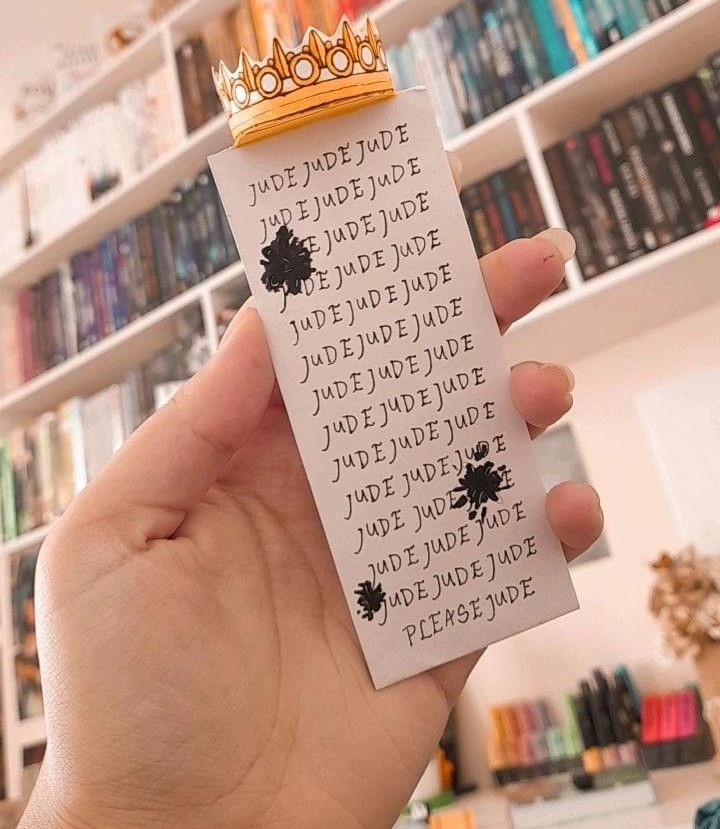 JUDE JUDE JUDE
JUDE JUDE JUDE
JUDE JUDE
JUDE JUDE JUDE
JUDE JUDE JUDE
JUDE JUDE JUDE
JUDE JUDE JUDE
JUDE JUDE JUDE
JUDE JUDE JUDE
JUDE JUDE JUDE
JUDE JUDE
JUDE JUDE JUDE
JUDE JUDE JUDE
PLEASE JUDE